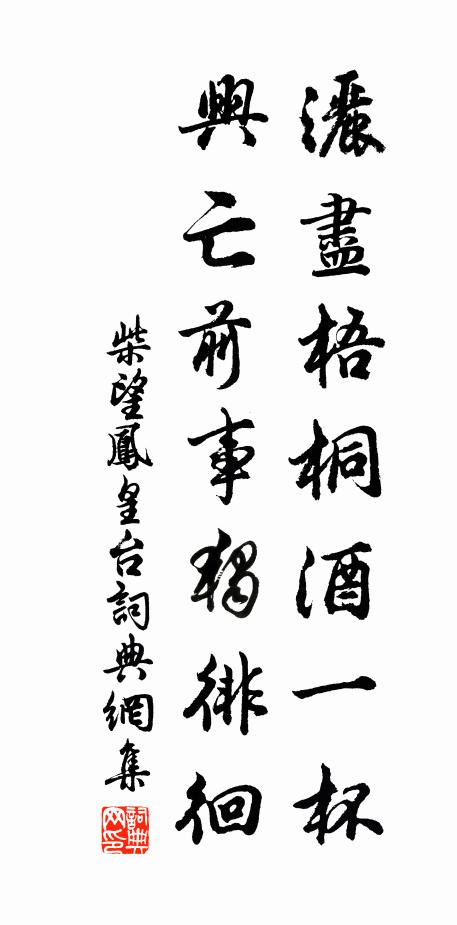 灑盡梧桐酒一杯
興亡前事獨徘徊
柴望鳳皇台詞典網集
詞典网印